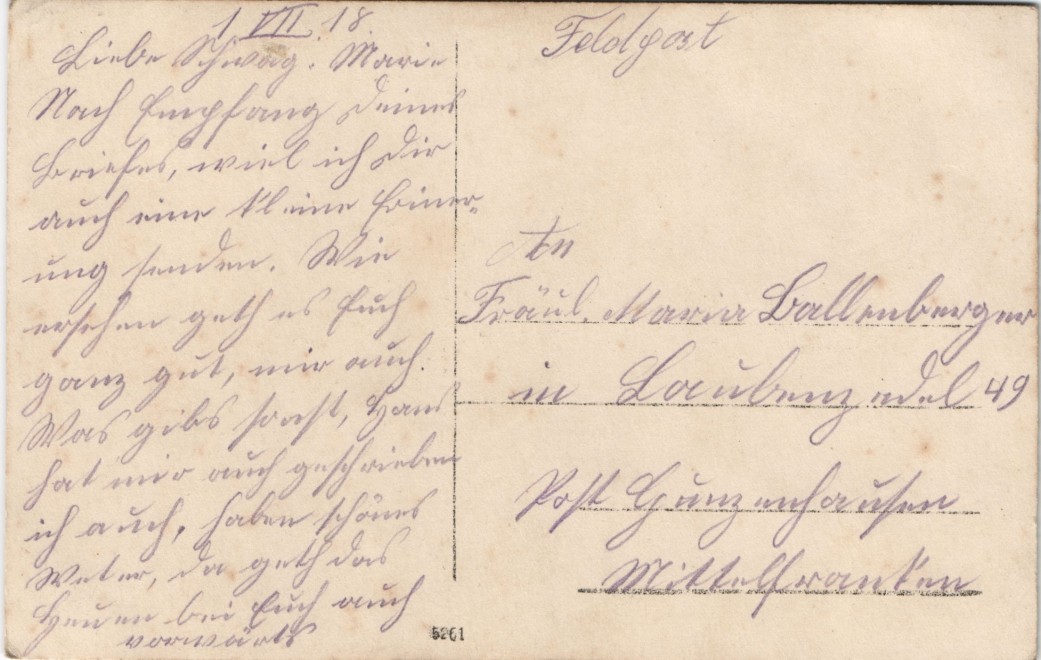 1 VII. 18.
Liebe Schwäg. Marie
Nach Empfang deines
Briefes, wiel ich dir
auch eine kleine Erinner-
ung senden. Wie
ersehen geth es Euch
ganz gut, mir auch.
Was gibs sonst, Hans
hat mir auch geschrieben
ich auch, haben schönes
Weter, da geth das
Heuen bei Euch auch
vorwärts
5261
Feldpost
An
Fräul. Maria Ballenberger
in Laubenzedel 49
Post Gunzenhausen
Mittelfranken